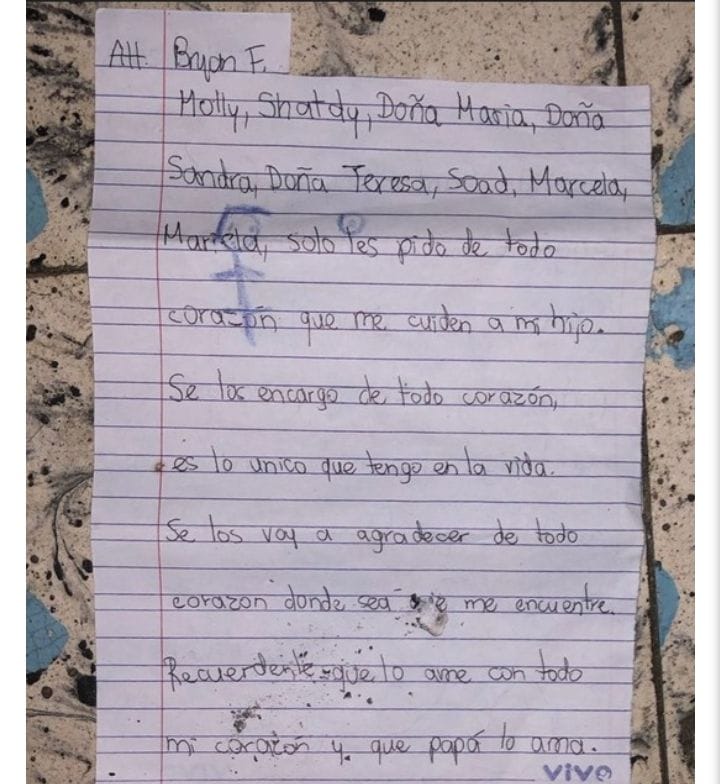 Att. Bryan F.
Molly, Shatdy, Doña Maria, Doña
Sandra, Doña Teresa, Soad, Marcela,
Mariela, solo les pido de todo
corazón que me cuiden a mi hijo.
Se los encargo de todo corazón,
es lo unico que tengo en la vida.
Se los voy a agradecer de todo
corazon donde sea que me encuentre.
Recuerdenle que lo ame con todo
mi corazón y que papá lo ama.
vivo